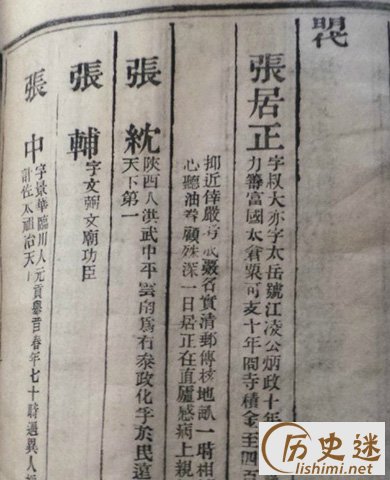 明代
張居正
字叔大亦字太岳號江凌公炳政十年
力籌富國太倉粟可支十年冏寺積金至四百
抑近倖嚴 嚴名實清郵傳核地畝一時相
心聽 眷顧殊深一日居正在直廬感病上親
張紞
陝西人洪武中平雲南爲右叅政化孚於民遠
天下第一
張輔
字文弼文廟功臣
張中
字景華臨川人元貢舉 春年七十時遇異人
計性太祖治天
历史迷
lishimi.net